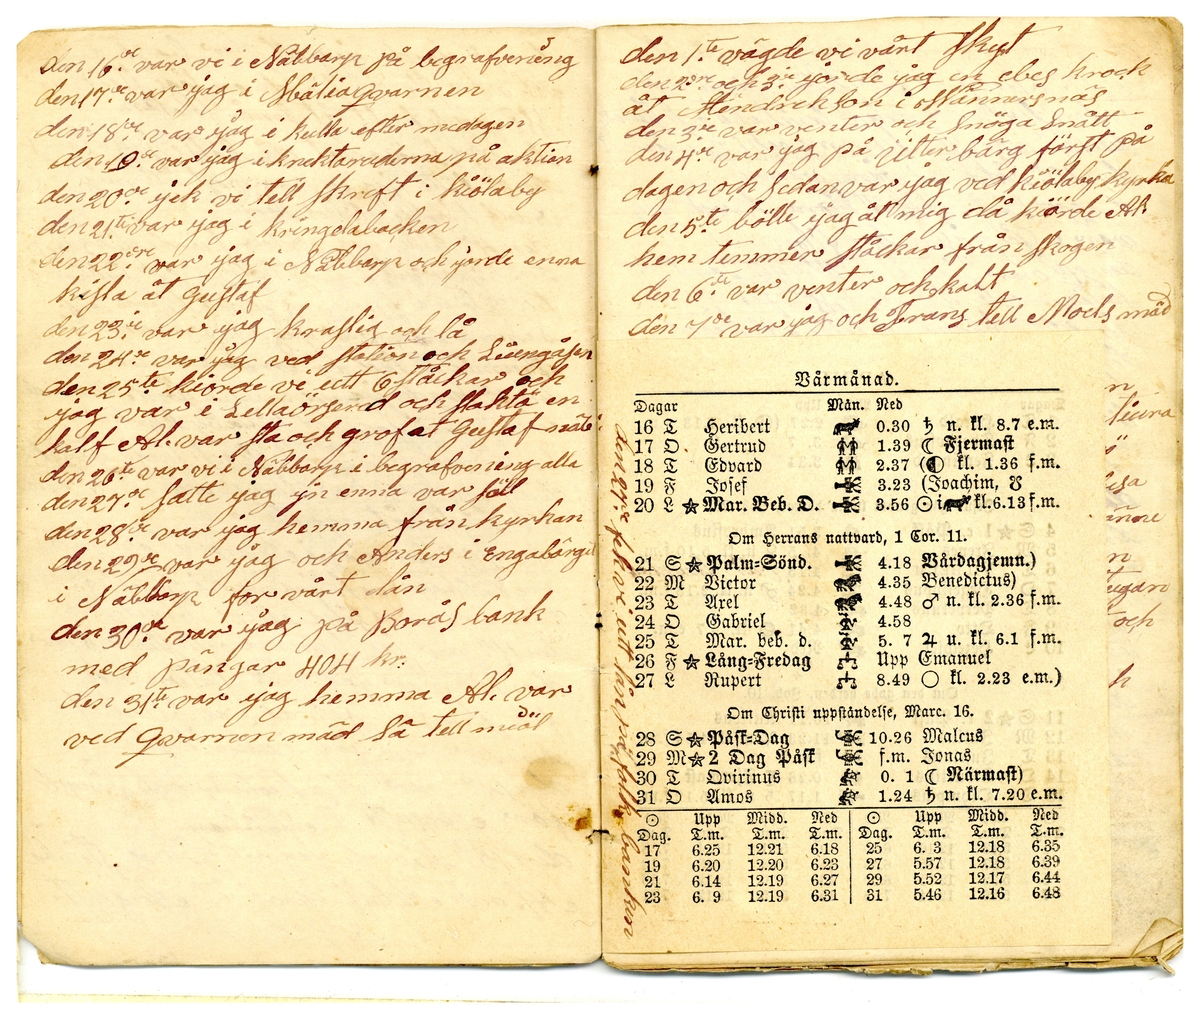 den 16de var vi i Näbbarp på begrafvening
den 17de var jag i Mälia qvarnen
den 18de var jag i kulla efter medagen
den 19de var jag i knektarederna på aktion
den 20de jek vi tell skreft i kiölaby
den 21te var jag i kringelabacken
den 22dre var jag i Näbbarp och jörde enna
kista åt Gustaf
den 23de var jag kraslig och lå
den 24de var jag ved station och Liengåsen
den 25te kiörde vi utt 6 ståckar och
jag var i Lellaörserd och slaktä en
kalf Al. var sta och grof at Gustaf
den 26te var vi i Näbbarp i begrafvening alla
den 27de satte jag jn enna var
den 28de var jag hemma från kyrkan
den 29de var jag och Anders i Engabärgit
i Näbbarp för vårt lån
den 30de var jag på Borås bank
med pängar 404 kr.
den 31te var jag hemma Al. var
ved qvarnen mäd Sä tell miöl
den 1te vägde vi vårt
den 2dre och 3de jörde jag en ebes krock
åt Hendrickson i Männersnäs
den 3de var venter och Snöga Snått
den 4de var jag på Ulter bärg först på
dagen och sedan var jag ved kiölaby kyrka
den 5te bölte jag åt mig då kiörde Al.
hem temmer ståckar från skogen
den 6te var venter och kalt
den 7de var jag och Frans tell Moels mäd
Vårmånad.
Dagar Mån. Ned
16 T Heribert 0.30 ♄ n. kl. 8.7 e.m.
17 O Gertrud 1.39 ☾ Fjermast
18 T Edvard 2.37 (◐ kl. 1.36 f.m.
19 F Josef 3.23 (Joachim, ☋
20 L ☆ Mar. Beb. D. 3.56 ☉ i kl. 6.13 f.m.
Om Herrans nattvard, 1 Cor. 11.
21 S ☆ Palm-Sönd. 4.18 Vårdagjemn.)
22 M Victor 4.35 Benedictus)
23 T Axel 4.48 ♂ n. kl. 2.36 f.m.
24 O Gabriel 4.58
25 T Mar. beb. d. 5. 7 ♃ u. kl. 6.1 f.m.
26 F ☆ Lång-Fredag Upp Emanuel
27 L Rupert 8.49 ○ kl. 2.23 e.m.)
Om Christi uppståndelse, Marc. 16.
28 S ☆ Påsk-Dag 10.26 Malcus
29 M ☆ 2 Dag Påsk f.m. Jonas
30 T Qvirinus 0. 1 ☾ Närmast)
31 O Amos 1.24 ♄ n. kl. 7.20 e.m.
☉ Upp Midd. Ned ☉ Upp Midd. Ned
Dag. T.m. T.m. T.m. Dag. T.m. T.m. T.m.
17 6.25 12.21 6.18 25 6. 3 12.18 6.35
19 6.20 12.20 6.23 27 5.57 12.18 6.39
21 6.14 12.19 6.27 29 5.52 12.17 6.44
23 6. 9 12.19 6.31 31 5.46 12.16 6.48
vi utt lån banken
och